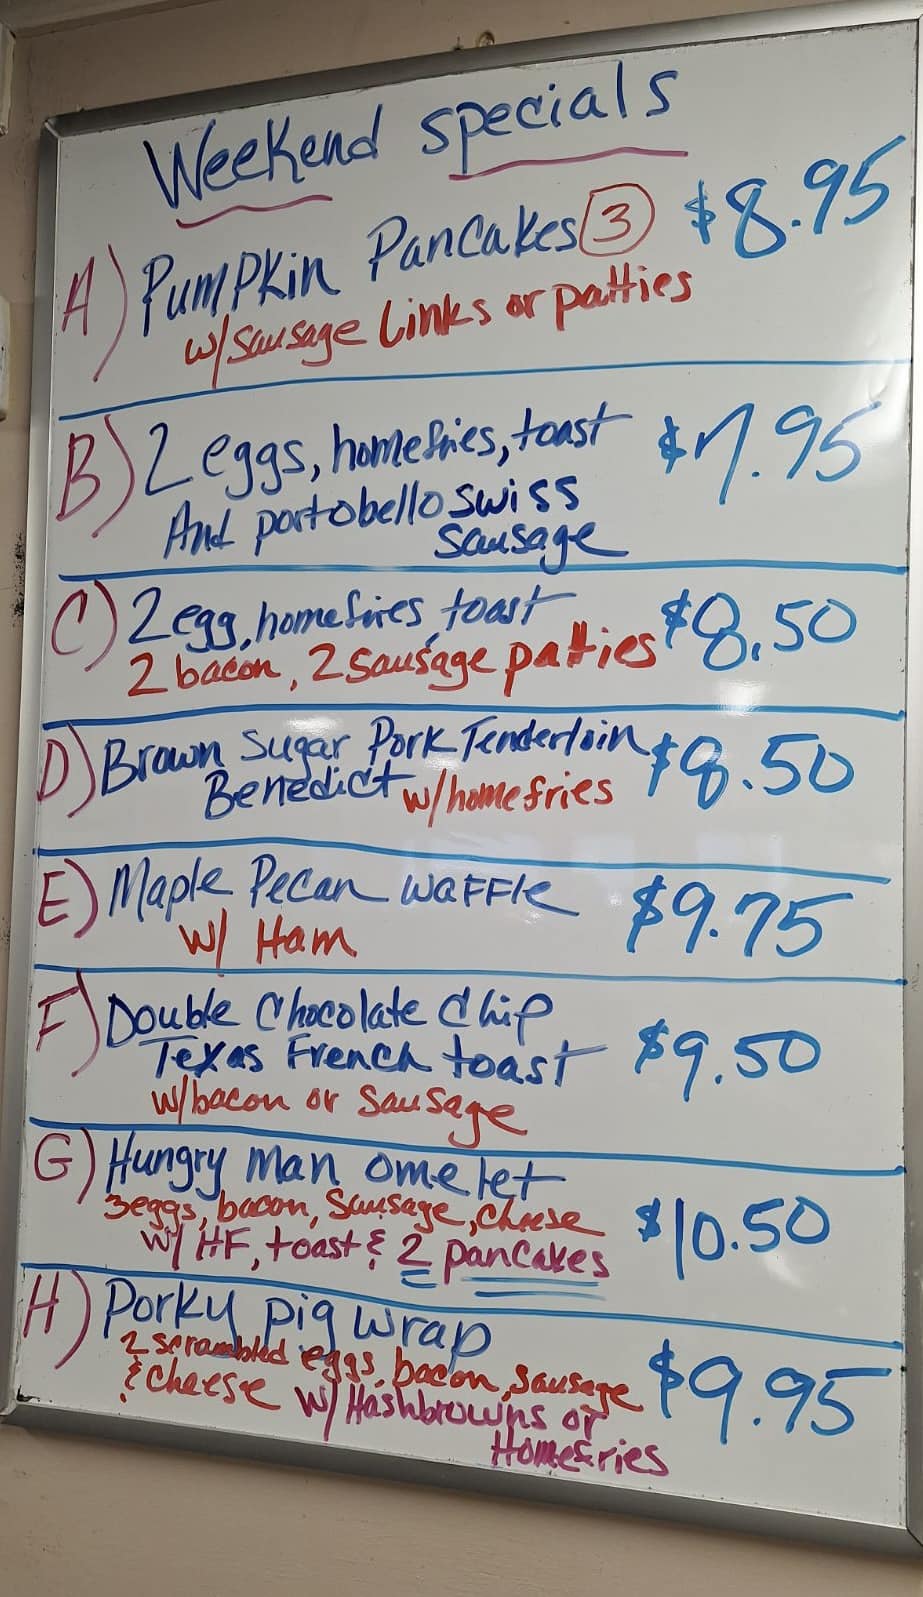 Weekend specials
A) Pumpkin Pancakes 3 $8.95
w/sausage Links or patties
B) 2 eggs, homefries, toast $7.95
And portobello swiss
sausage
C) 2 egg, homefires, toast $8.50
2 bacon, 2 sausage patties
D) Brown Sugar Pork Tenderloin $8.50
Benedict w/homefries
E) Maple Pecan Waffle $9.75
w/ Ham
F) Double Chocolate Chip
Texas French toast $9.50
w/bacon or Sausage
G) Hungry man omelet
3eggs, bacon, Sausage, cheese $10.50
w/ HF, toast & 2 pancakes
H) Porky pig wrap
2 scrambled eggs, bacon, sausage $9.95
& cheese w/ Hashbrowns or
Homefries